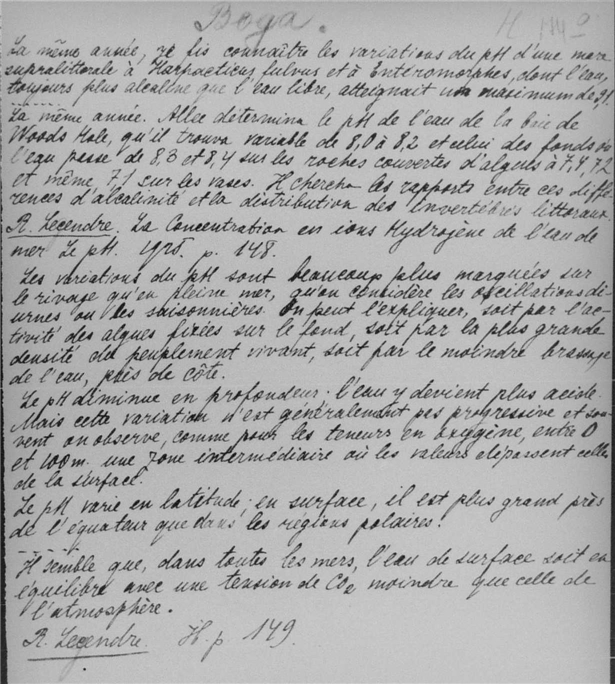 Вода.
La même année, je fis connaître les variations du pH d'une mare
supralittorale à Harpacticus fulvus et à Entéromorphes, dont l'eau,
toujours plus alcaline que l'eau libre, atteignait un maximum de 9,1
La même année. Allee détermina le pH de l'eau de la baie de
Woods Hole, qu'il trouva variable de 8,0 à 8,2 et celui des fonds où
l'eau passe de 8,3 et 8,4 sur les roches couvertes d'algues à 7,4, 7,2
et même, 7,1 sur les vases. Il chercha les rapports entre ces diffé-
rences d'alcalinité et la distribution des Invertébrés littoraux.
R. Legendre. La Concentration en ions Hydrogène de l'eau de
mer Le pH. 1925. p. 148.
Les variations du pH sont beaucoup plus marquées sur
le rivage qu'en pleine mer, qu'on considère les oscillations di-
urnes ou les saisonnières. On peut l'expliquer, soit par l'ac-
tivité des algues fixées sur le fond, soit par la plus grande
densité du peuplement vivant, soit par le moindre brassage
de l'eau, près de côte.
Le pH diminue en profondeur: l'eau y devient plus acide.
Mais cette variation n'est généralement pas progressive et sou-
vent on observe, comme pour les teneurs en oxygène, entre 0
et 100 m. une zone intermédiaire où les valeurs dépassent celles
de la surface.
Le pH varie en latitude; en surface, il est plus grand près
de l'équateur que dans les régions polaires.
Il semble que, dans toutes les mers, l'eau de surface soit en
équilibre avec une tension de CO2 moindre que celle de
l'atmosphère.
R. Legendre. H. p. 149.